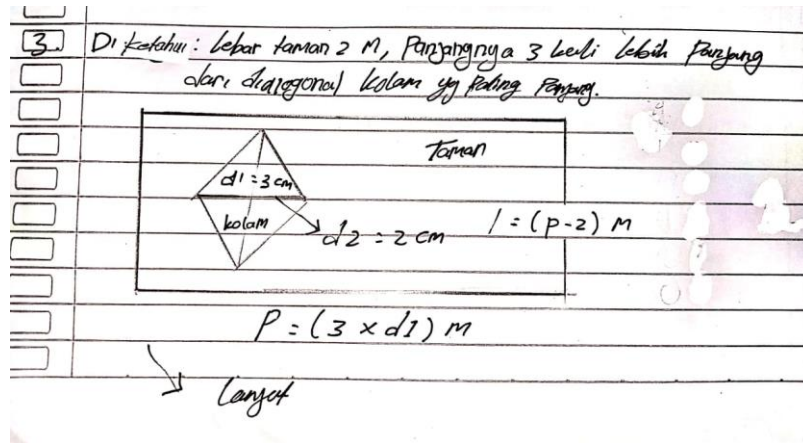 3. Diketahui: lebar taman 2 M, Panjangnya 3 kali lebih Panjang
dari didiagonal kolam yg Paling Panjang.
Taman
d1 = 3 cm
kolam
d2 = 2 cm
l = (p-2) M
P = (3 x d1) M
lanjut